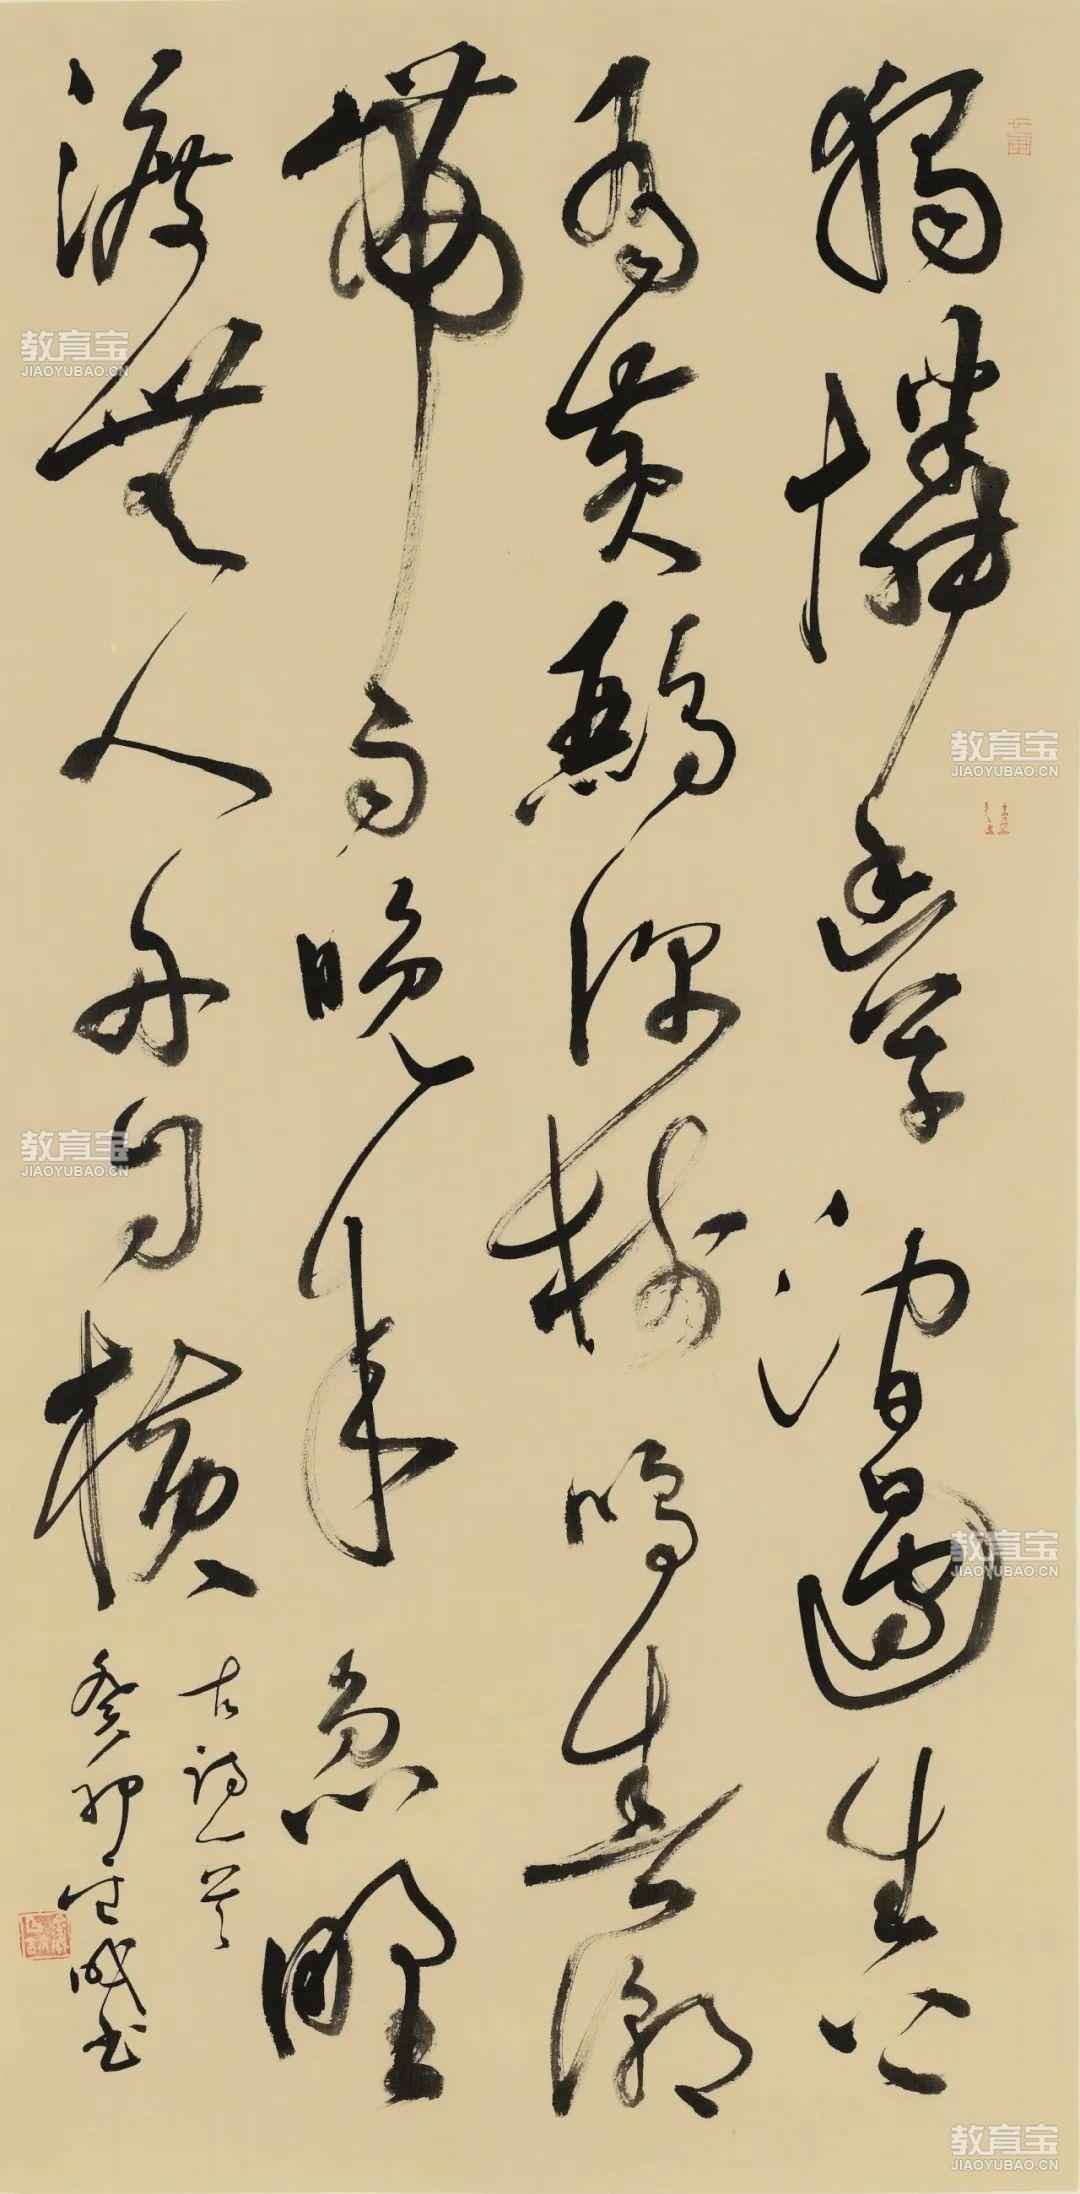 獨憐幽草澗邊生上
有黃鸝深樹鳴春潮
帶雨晚來急野
渡無人舟自橫
古詩一首
癸卯 書
教育宝
JIAOYUBAO.CN
教育宝
JIAOYUBAO.CN
教育宝
JIAOYUBAO.CN
教育宝
JIAOYUBAO.CN
教育宝
JIAOYUBAO.CN